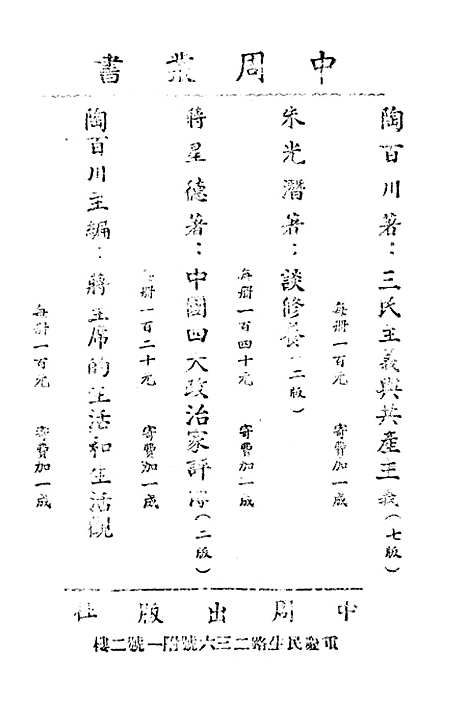 中周叢書
陶百川著：三民主義與共產主義（七版）
每册一百元　寄費加一成
朱光潛著：談修養（二版）
每册一百四十元　寄費加一成
蔣星德著：中國四大政治家評傳（二版）
每册一百二十元　寄費加一成
陶百川主編：蔣主席的生活和生活觀
每册一百元　寄費加一成
中周出版社
重慶民生路二三六號附一號二樓